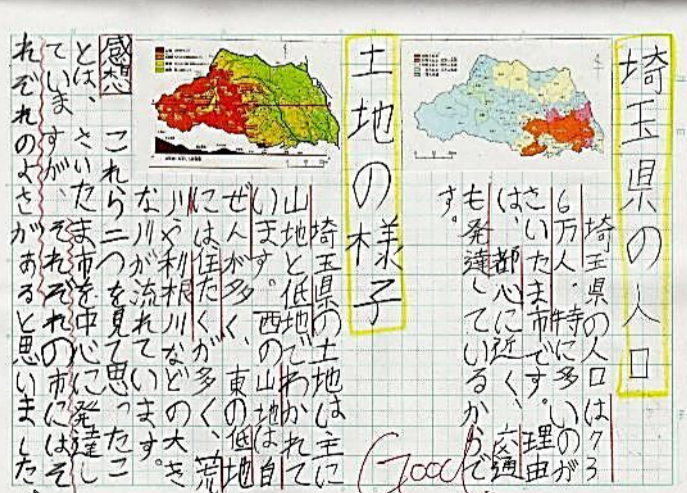 埼玉県の人口
埼玉県の人口は73
6万人。特に多いのが
さいたま市です。理由
は、都心に近く、交通
も発達しているからで
す。
土地の様子
埼玉県の土地は主に
山地と低地でわかれて
います。西の山地は自
ぜんが多く、東の低地
には住たくが多く、荒
川や利根川などの大き
な川が流れています。
感想
これら二つを見て思ったこ
とは、さいたま市を中心に発達し
ていますが、それぞれの市にはそ
れぞれのよさがあると思いました
Good